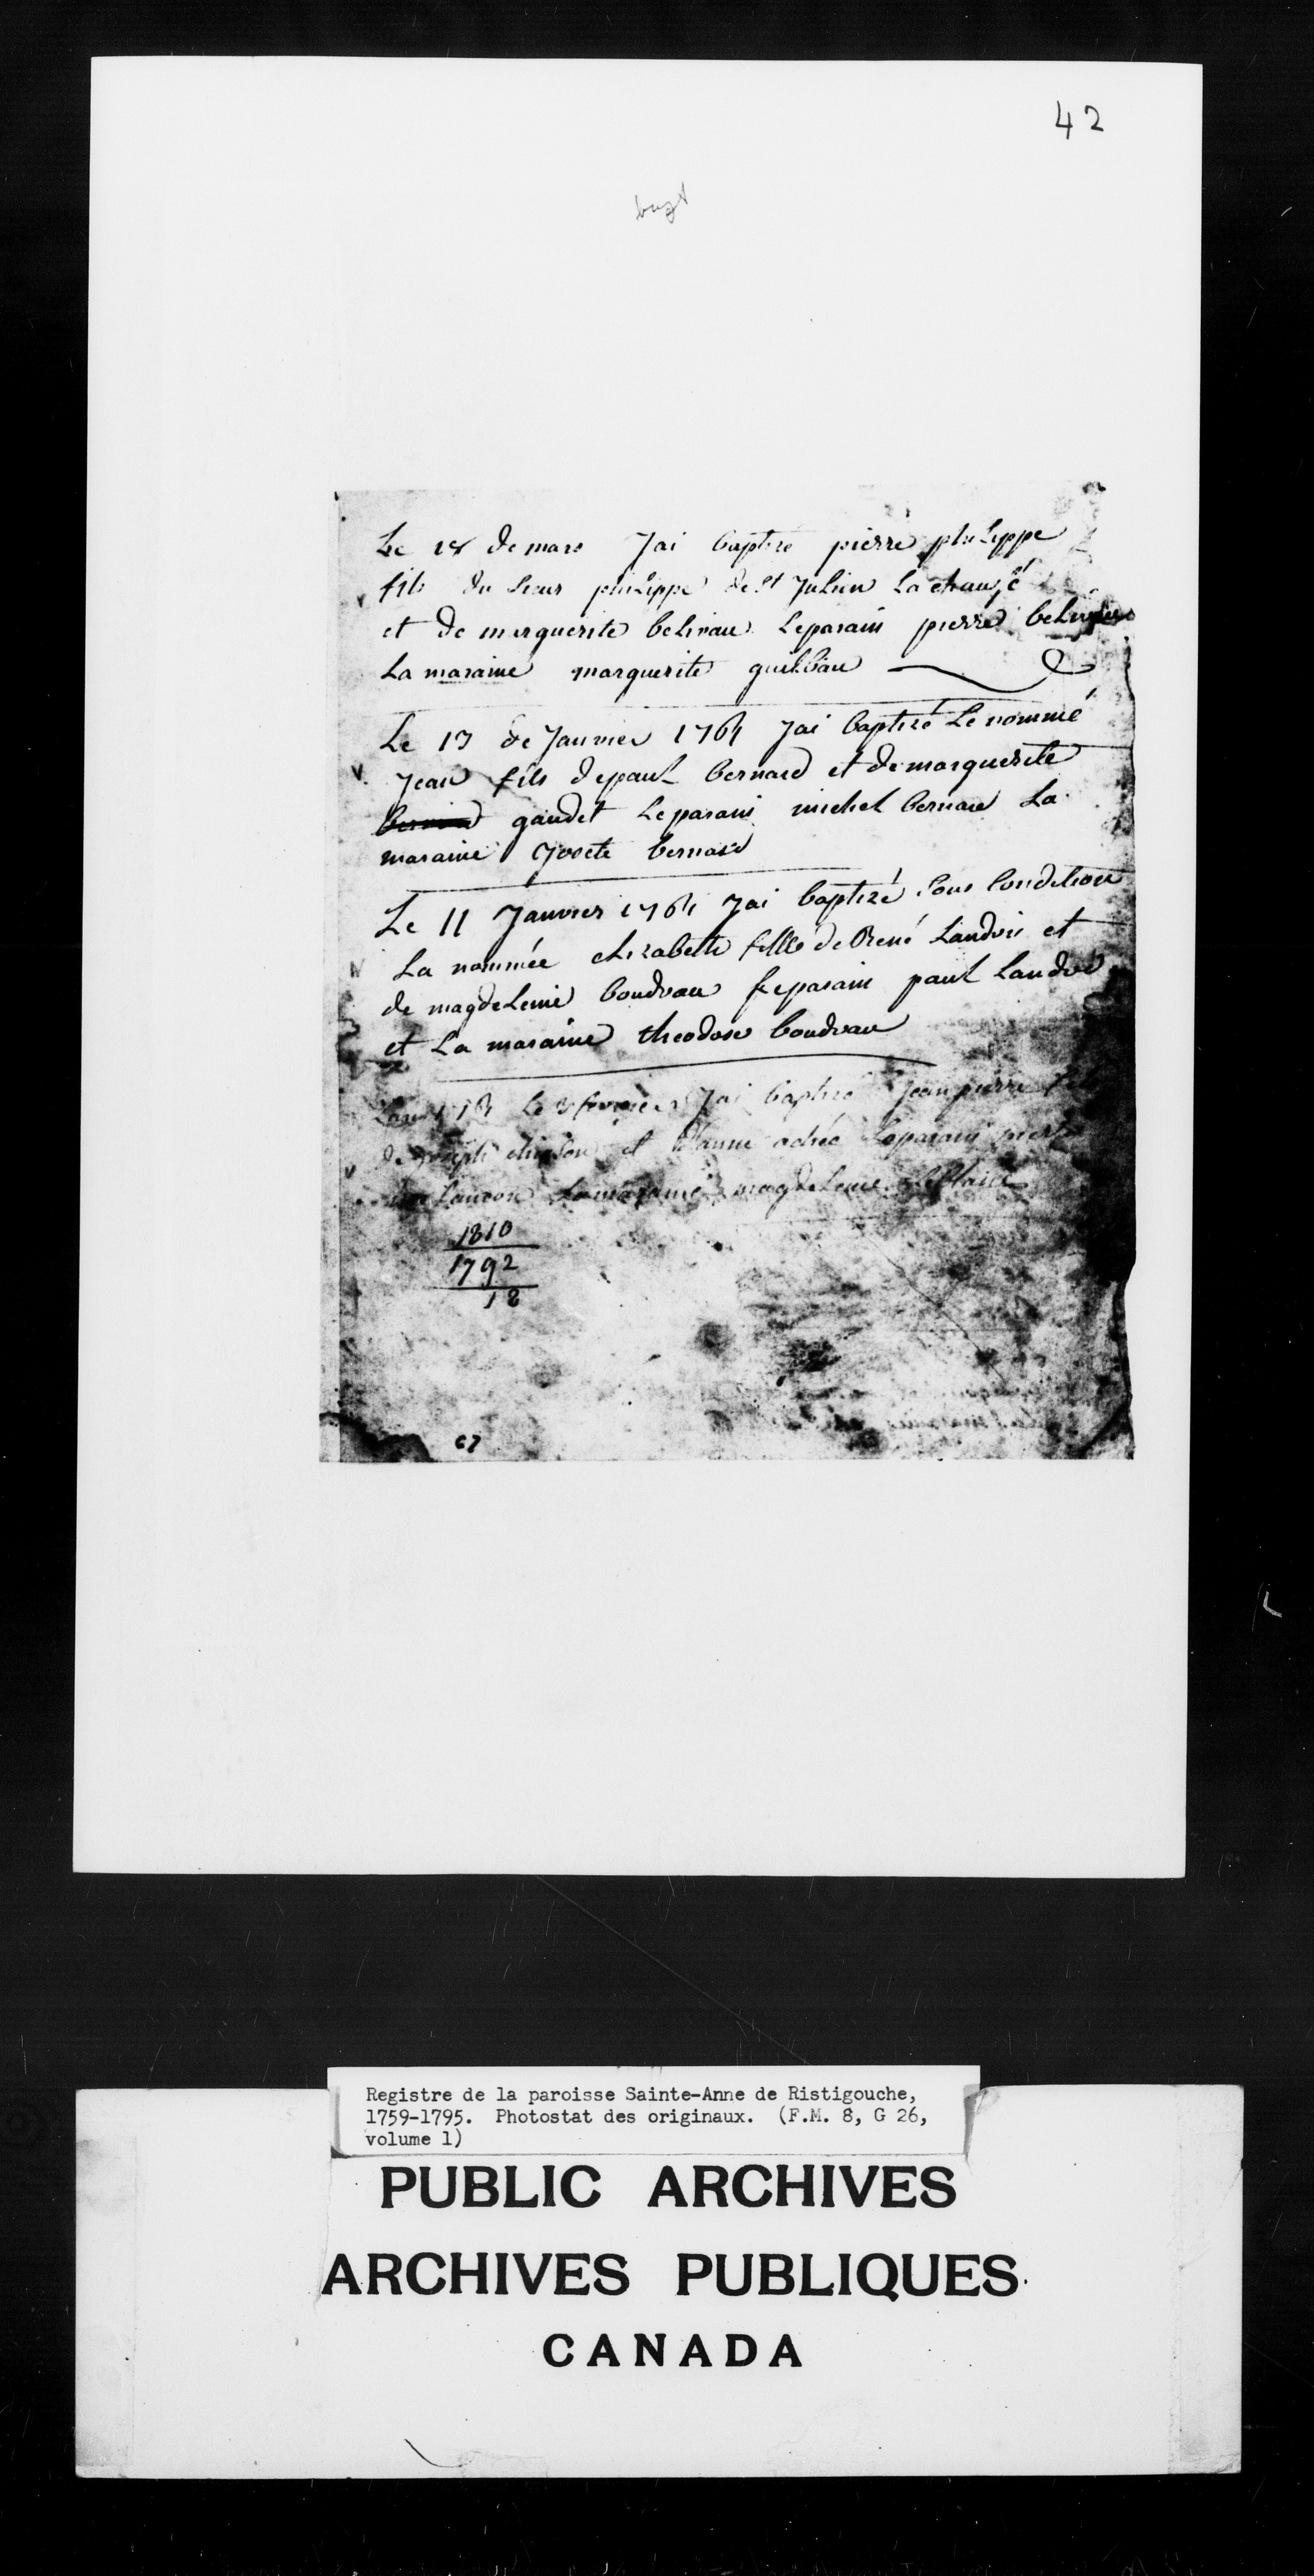 42
bapt
Le 18 de mars Jai baptisé pierre philippe
fils du sieur philippe de St Julien Lachaussé
et de marguerite belivau Leparain pierre
La maraine marguerite guilbau
Le 17 de Janvier 1761 Jai baptizé Le nommé
Jean fils depaul bernard et demarguerite
gaudet Leparain michel bernard La
maraine Josete bernard
Le 11 Janvier 1761 Jai baptizé sous condition
La nommée elizabeth fille de René Landri et
de magdeleine boudrau Leparain paul Landri
et La maraine theodose boudrau
Le fevrier Jai baptizé Jean pierre
de Joseph et d'anne Leparain
La maraine magdeleine
1810
1792
18
67
Registre de la paroisse Sainte-Anne de Ristigouche,
1759-1795. Photostat des originaux. (F.M. 8, G 26,
volume 1)
PUBLIC ARCHIVES
ARCHIVES PUBLIQUES
CANADA